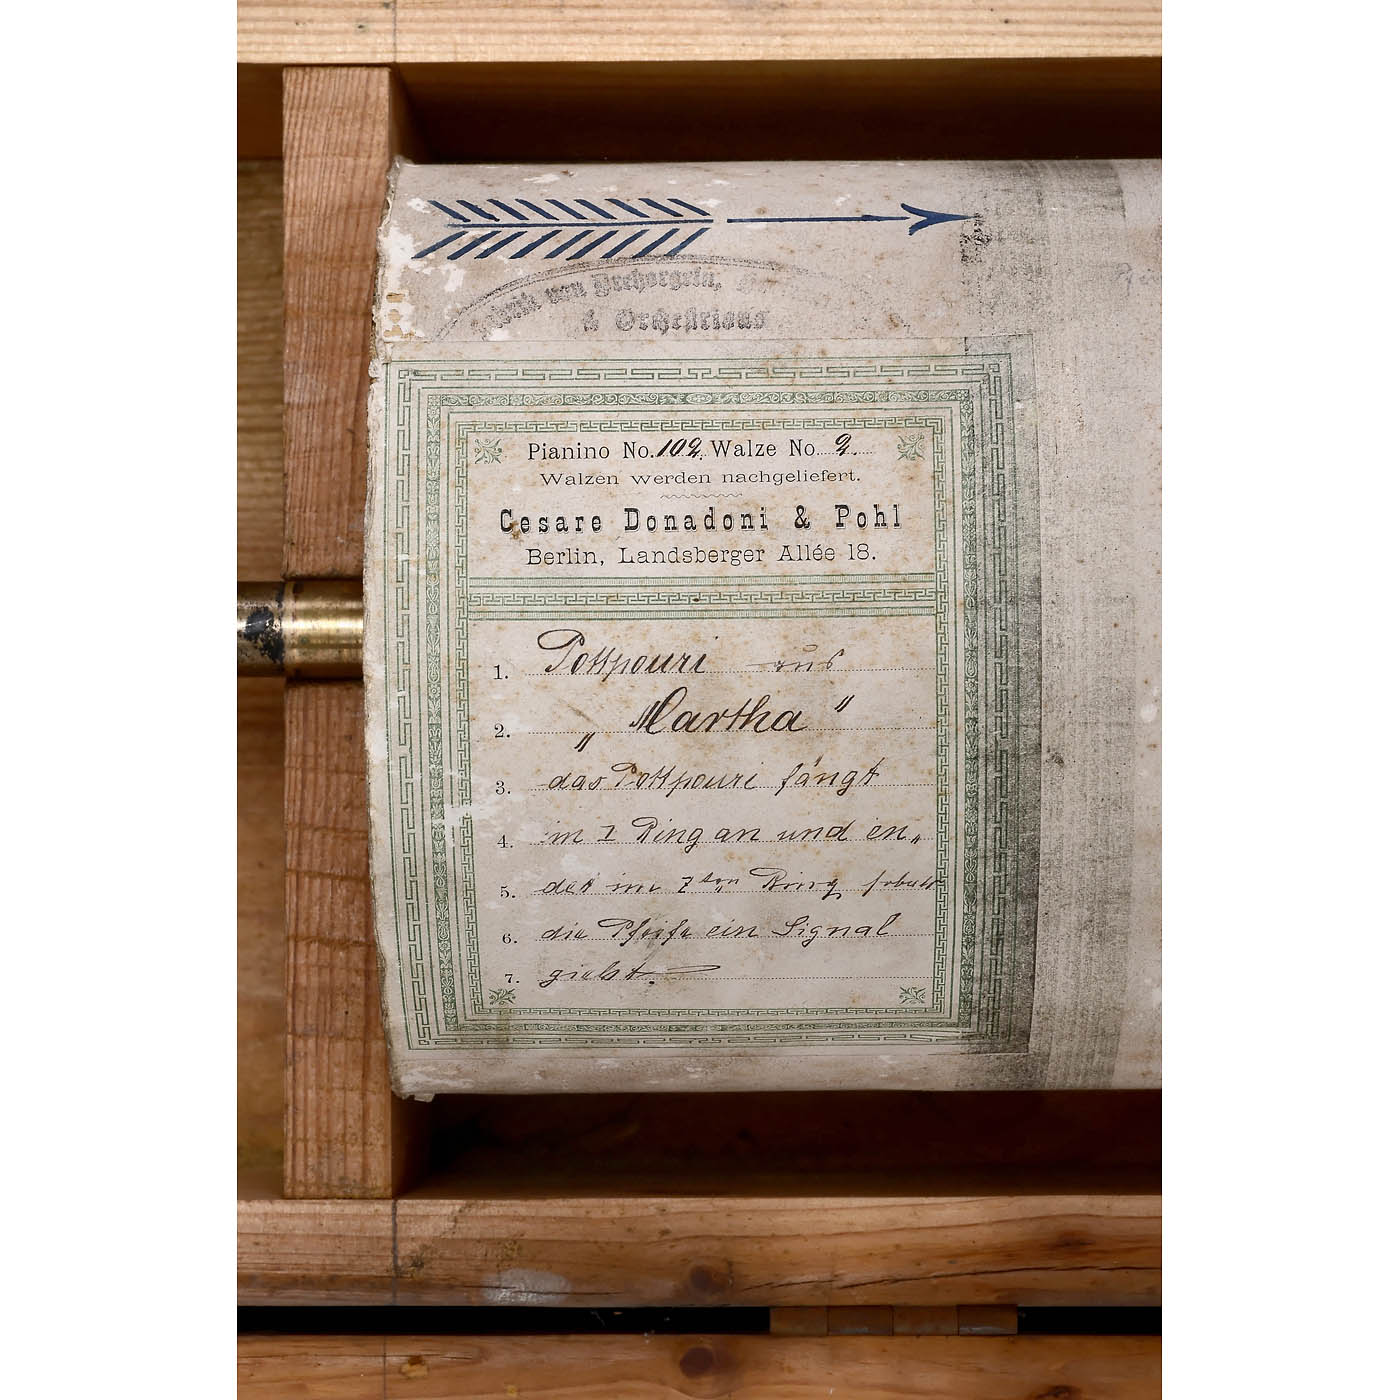 Fabrik von Drehorgeln,
& Orchestrions
Pianino No. 102. Walze No. 2.
Walzen werden nachgeliefert.
Cesare Donadoni & Pohl
Berlin, Landsberger Allée 18.
1. Pottpouri aus
2. „Martha"
3. das Pottpouri fängt
4. im I Ring an und en„
5. det im 7ten Ring sobald
6. die Pfeife ein Signal
7. giebt.